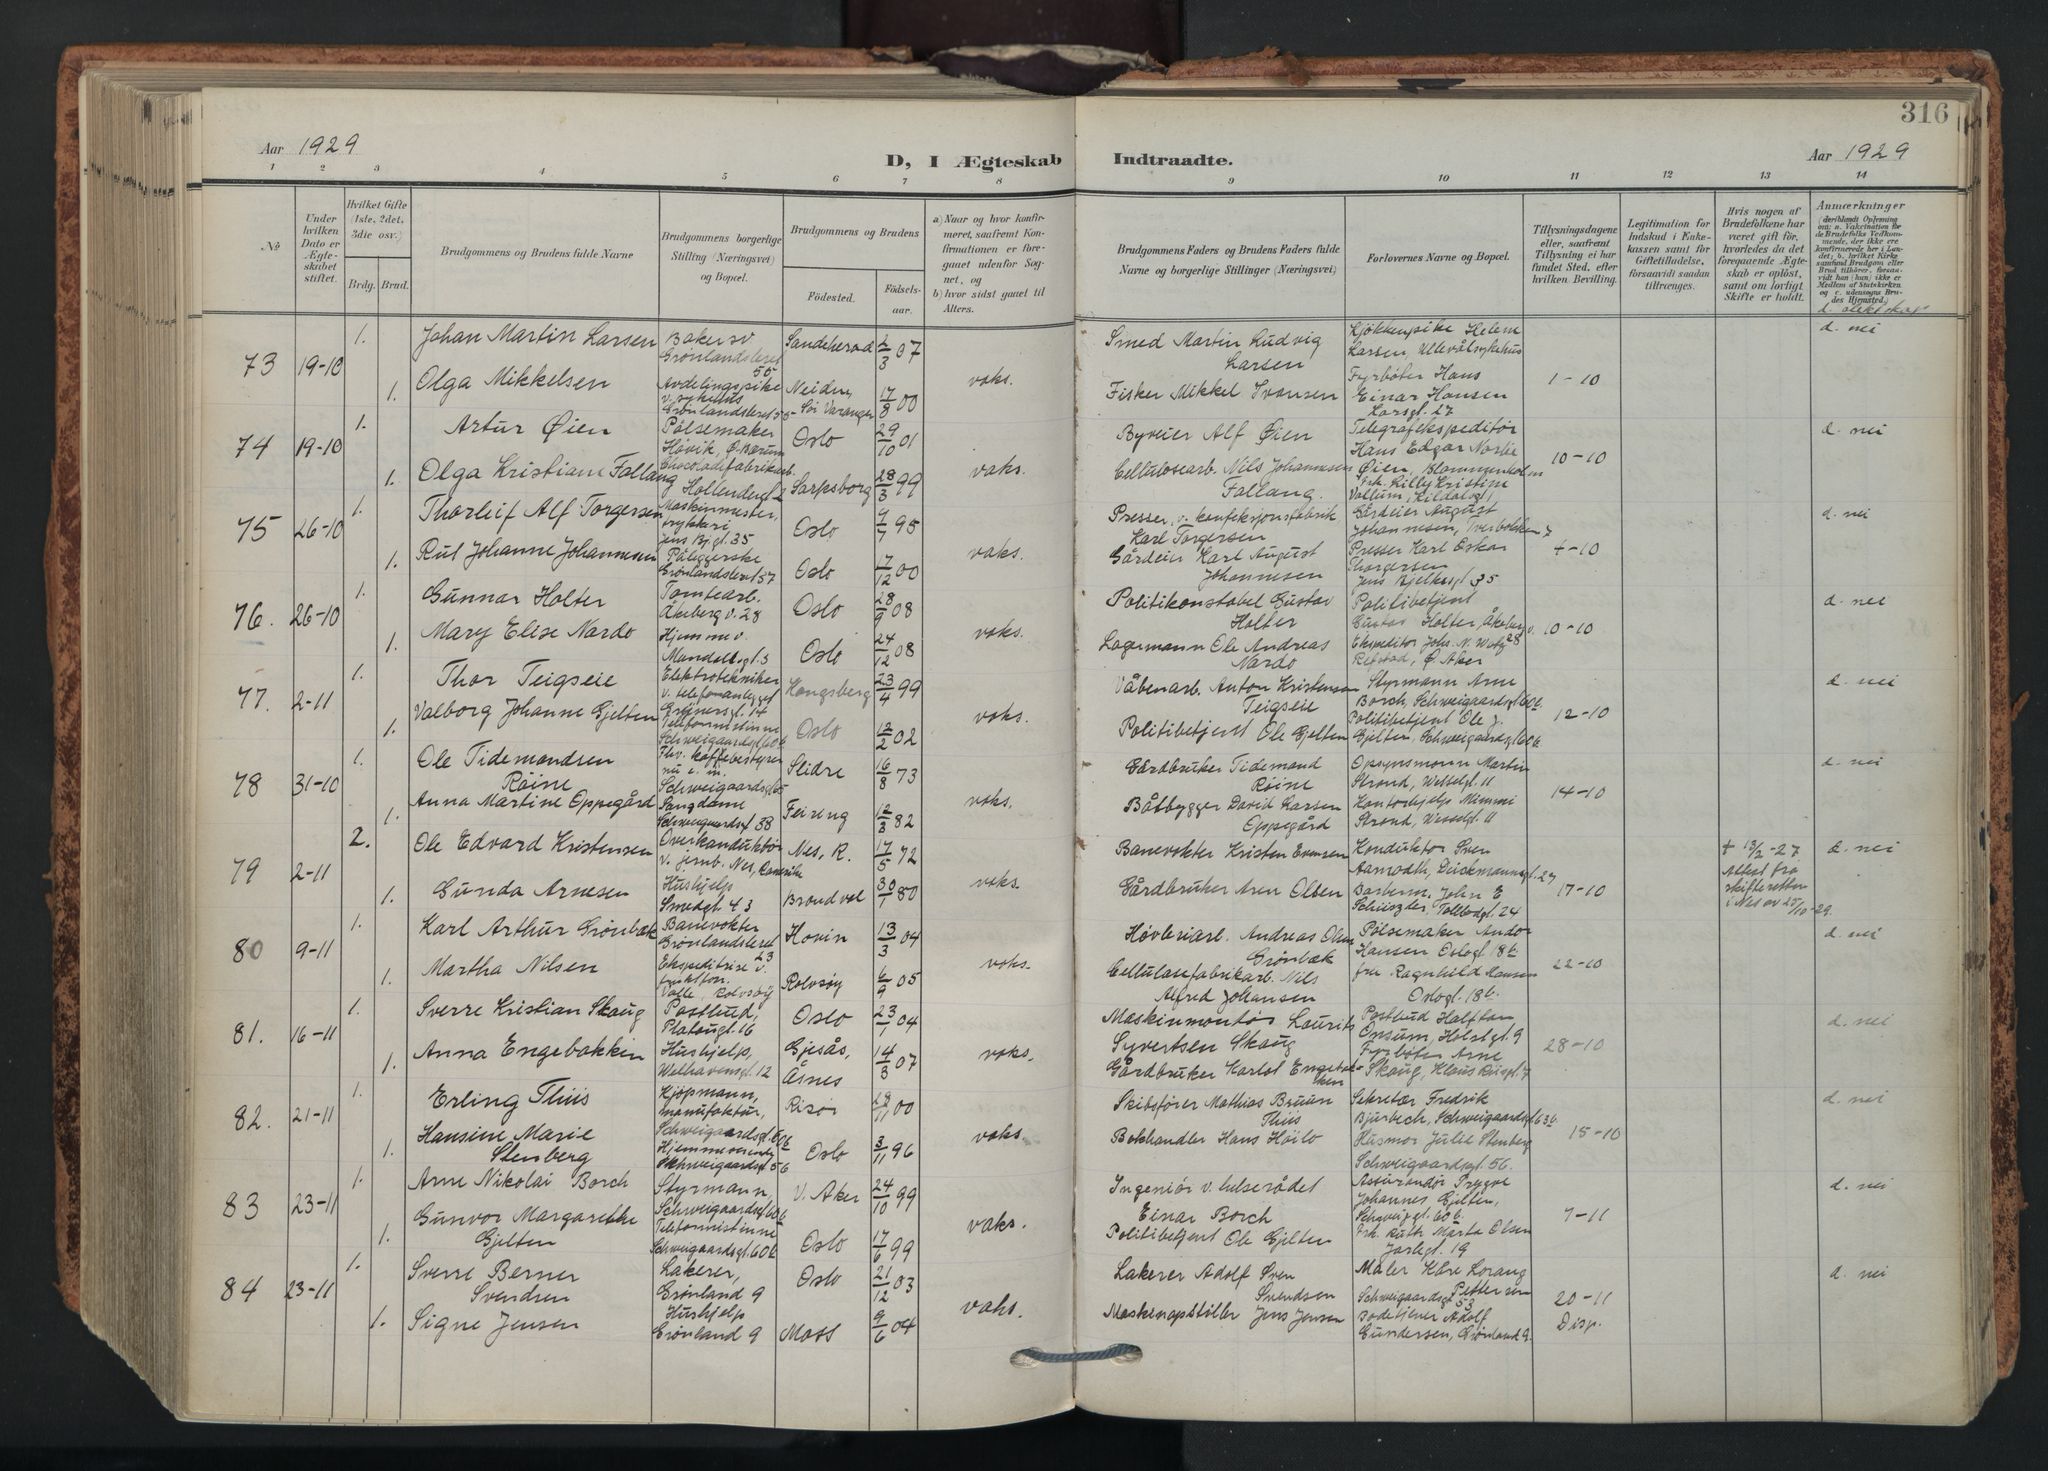 316
Aar 1929
D, I Ægteskab
Indtraadte.
Aar 1929
1 2 3 4 5 6 7 8 9 10 11 12 13 14
№
Under hvilken Dato er Ægteskabet stiftet.
Hvilket Gifte (1ste, 2det, 3die osv.)
Brdg. Brud.
Brudgommens og Brudens fulde Navne
Brudgommens borgerlige Stilling (Næringsvei) og Bopæl.
Brudgommens og Brudens
Födested. Födselsaar.
a) Naar og hvor konfirmeret, saafremt Konfirmationen er foregaaet udenfor Sognet, og
b) hvor sidst gaaet til Alters.
Brudgommens Faders og Brudens Faders fulde Navne og borgerlige Stillinger (Næringsvei)
Forlovernes Navne og Bopæl.
Tillysningsdagene eller, saafremt Tillysning ei har fundet Sted, efter hvilken Bevilling.
Legitimation for Indskud i Enkekassen samt for Giftetilladelse, forsaavidt saadan tiltrænges.
Hvis nogen af Brudefolkene har været gift før, hvorledes da det foregaaende Ægteskab er opløst, samt om lovligt Skifte er holdt.
Anmærkninger
d. slektskap
73 19-10 1. Johan Martin Larsen Bakersv. Grønlandsleret 55 Sandeherad 2/3 07 Smed Martin Ludvig Larsen Kjøkkenpike Helene Larsen, Ullevål sykehus d. nei
1. Olga Mikkelsen Avdelingspike v. sykehus Grönlandsleret 55 Neiden, Sør Varanger 17/8 00 voks. Fisker Mikkel Ivarsen Fyrböter Hans Einar Hansen Larsgt. 27 1-10
74 19-10 1. Artur Øien Pølsemaker Hövik, Ø. Bærum Oslo 29/10 01 Byveier Alf Øien Telegrafekspeditör Hans Edgar Norbe Øien, Blommenholm d. nei
1. Olga Kristiane Fallang Chocoladefabrikarb. Hollendergt. 2 Sarpsborg 28/3 99 voks. Cellulosearb. Nils Johannesen Fallang. Frk. Lilly Kristine Vallum, Kildalsgt. 1 10-10
75 26-10 1. Thorleif Alf Torgersen Maskinmester, trykkeri Jens Bj.gt. 35 Oslo 9/7 95 Presser v. konfeksjonsfabrik Karl Torgersen Gårdeier August Johannesen, Tverbakken 7 d. nei
1. Rut Johanne Johannesen Påleggerske Grønlandsleret 57 Oslo 17/12 00 voks. Gårdeier Karl August Johannesen Presser Karl Oskar Thorgersen Jens Bjelkesgt. 35 4-10
76. 26-10 1. Gunnar Holter Tomtearb. Åkeberg v. 28 Oslo 28/9 08 Politikonstabel Gustav Holter Politibetjent Gustav Holter, Åkeberg v. 28 d. nei
1. Mary Elise Nardo Hjemme v. Mandalsgt. 3 Oslo 24/12 08 voks. Lagermann Ole Andreas Nardo Ekspeditör Johs. N. Refstad, Ø. Aker 10-10
77. 2-11 1. Thor Teigseie Elektrotekniker v. telefonanlegget Grünersgt. 14 Kongsberg 23/4 99 Våbenarb. Anton Kristensen Teigseie Styrmann Arne Borch, Schweigaardsgt 60b d. nei
1. Valborg Johanne Gjelten Telefonistinne Schweigaardsgt 60b Oslo 12/2 02 voks. Politibetjent Ole Gjelten Politibetjent Ole J. Gjelten, Schweigaardsgt 60b. 12-10
78 31-10 1. Ole Tidemandsen Röine Fhv. kaffebestyrer nu e. m. Schweigaardsgt 65 Slidre 16/8 73 Gårdbruker Tidemand Röine Opsynsmann Martin Strand, Wesselgt. 11 d. nei
1. Anna Martine Oppegård Sangdame Schweigaardsgt 38 Feiring 12/3 82 voks. Båtbygger David Larsen Oppegård Kontorhjelp Mimmi Strand, Wesselgt. 11 14-10
79 2-11 2. Ole Edvard Kristensen Overkonduktör v. jernb. Nes, Romerike Nes, R. 17/5 72 Banevokter Kristen Evensen Konduktör Sven Aamodth, Deichmannsgt. 27 + 13/2-27. Attest fra skifteretten i Nes av 25/10-29. d. nei
1. Gunda Arnesen Hushjelp Smedgt. 43 Brandval 30/1 80 voks. Gårdbruker Aren Olsen Barberm. John E Schüszler, Tollbodgt. 24 17-10
80 9-11 1. Karl Arthur Grönbæk Banevokter Grönlandsleret 23 Hovin 13/3 04 Høvleriarb. Andreas Olsen Grönbæk Pølsemaker Andor Hansen Oslogt 18b d. nei
1. Martha Nilsen Ekspeditrise v. Valle, Rolvsöy Rolvsöy 6/9 05 voks. Cellulosefabrikarb. Nils Alfred Johansen fru Ragnhild Hansen Oslogt. 18b. 22-10
81. 16-11 1. Sverre Kristian Skaug Postbud, Platousgt. 16 Oslo 23/1 04 Maskinmontör Laurits Syvertsen Skaug Postbud Halftan Onsum, Holstgt. 9 d. nei
1. Anna Engebakken Hushjelp, Welhavensgt. 12 Gjesås, Åsnes 14/3 07 voks. Gårdbruker Karlot Engebakken Fyrböter Arne Skaug, Klaus Riisgt. 7 28-10
82. 21-11 1. Erling Thiis Kjøpmann, manufaktur, Schweigaardsgt. 60b Risør 28/11 00 Skibsförer Mathias Bruun Thiis Sekretær Fredrik Bjürbech, Schweigaardsgt 63b d. nei
1. Hansine Marie Stenberg Hjemmeværende Schweigaardsgt 56 Oslo 3/11 96 voks. Bokhandler Hans Höilo Husmor Julie Stenberg Schweigaardsgt. 56. 15-10
83 23-11 1. Arne Nikolai Borch Styrmann, Schweigaardsgt 60b V. Aker 24/10 99 Ingeniör v. helserådet Einar Borch Assurandør Trygve Johannes Gjelten, Schweig.gt. 60b. d. nei
1. Gunvor Margarethe Gjelten Telefonistinne Schweigaardsgt. 60b Oslo 17/6 99 voks. Politibetjent Ole Gjelten Frk. Ruth Marta Olsen Jarlegt. 19 7-11
84 23-11 1. Sverre Berner Svendsen Lakerer, Grönland 9 Oslo 21/12 03 Lakerer Adolf Sven Svendsen Maler Kåre Lorang Pettersen Schweigaardsgt 53 d. nei
1. Signe Jensen Hushjelp Grönland 9 Moss 9/6 04 voks. Maskinopstiller Jens Jensen Badebetjener Adolf Gundersen, Grönland 9. 20-11 Disp.